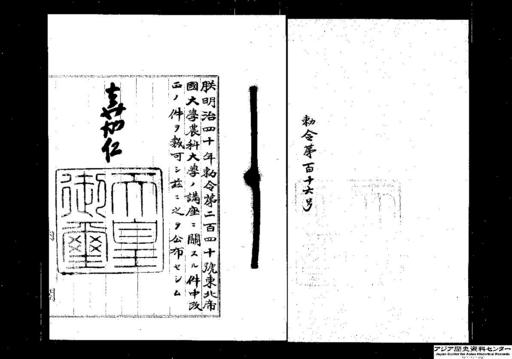 勅令第百十六号
朕明治四十年勅令第二百四十號東北帝
國大學農科大學ノ講座ニ關スル件中改
正ノ件ヲ裁可シ茲ニ之ヲ公布セシム
嘉仁
天皇
御璽
アジア歴史資料センター
Japan Center for Asian Historical Records